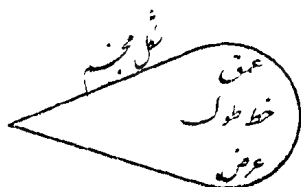 شکل مجسم
عمق
خط طول
عرض